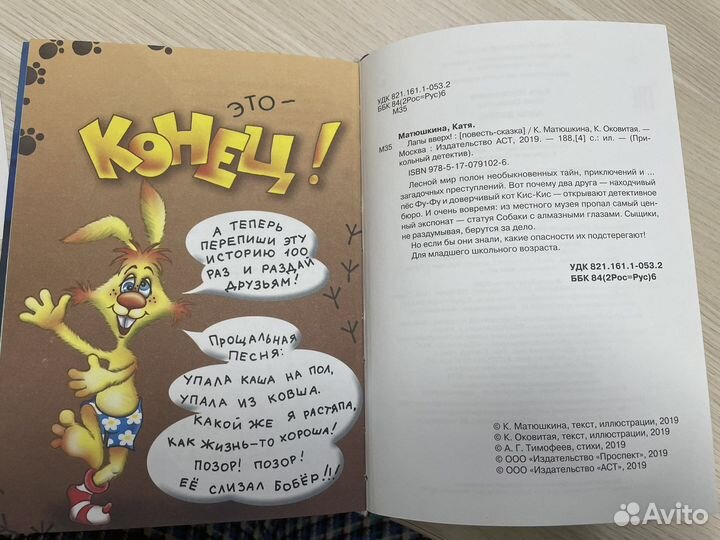 ЭТО –
КОНЕЦ!
А ТЕПЕРЬ
ПЕРЕПИШИ ЭТУ
ИСТОРИЮ 100
РАЗ И РАЗДАЙ
ДРУЗЬЯМ!
ПРОЩАЛЬНАЯ
ПЕСНЯ:
УПАЛА КАША НА ПОЛ,
УПАЛА ИЗ КОВША.
КАКОЙ ЖЕ Я РАСТЯПА,
КАК ЖИЗНЬ-ТО ХОРОША!
ПОЗОР! ПОЗОР!
ЕЁ СЛИЗАЛ БОБЁР!!!
УДК 821.161.1-053.2
ББК 84(2Рос=Рус)6
М35
Матюшкина, Катя.
М35 Лапы вверх! : [повесть-сказка] / К. Матюшкина, К. Оковитая. —
Москва : Издательство АСТ, 2019. — 188,[4] с.: ил. — (При-
кольный детектив).
ISBN 978-5-17-079102-6.
Лесной мир полон необыкновенных тайн, приключений и ...
загадочных преступлений. Вот почему два друга — находчивый
пёс Фу-Фу и доверчивый кот Кис-Кис — открывают детективное
бюро. И очень вовремя: из местного музея пропал самый цен-
ный экспонат — статуя Собаки с алмазными глазами. Сыщики,
не раздумывая, берутся за дело.
Но если бы они знали, какие опасности их подстерегают!
Для младшего школьного возраста.
УДК 821.161.1-053.2
ББК 84(2Рос=Рус)6
© К. Матюшкина, текст, иллюстрации, 2019
© К. Оковитая, текст, иллюстрации, 2019
© А. Г. Тимофеев, стихи, 2019
© ООО «Издательство «Проспект», 2019
© ООО «Издательство «АСТ», 2019
Avito